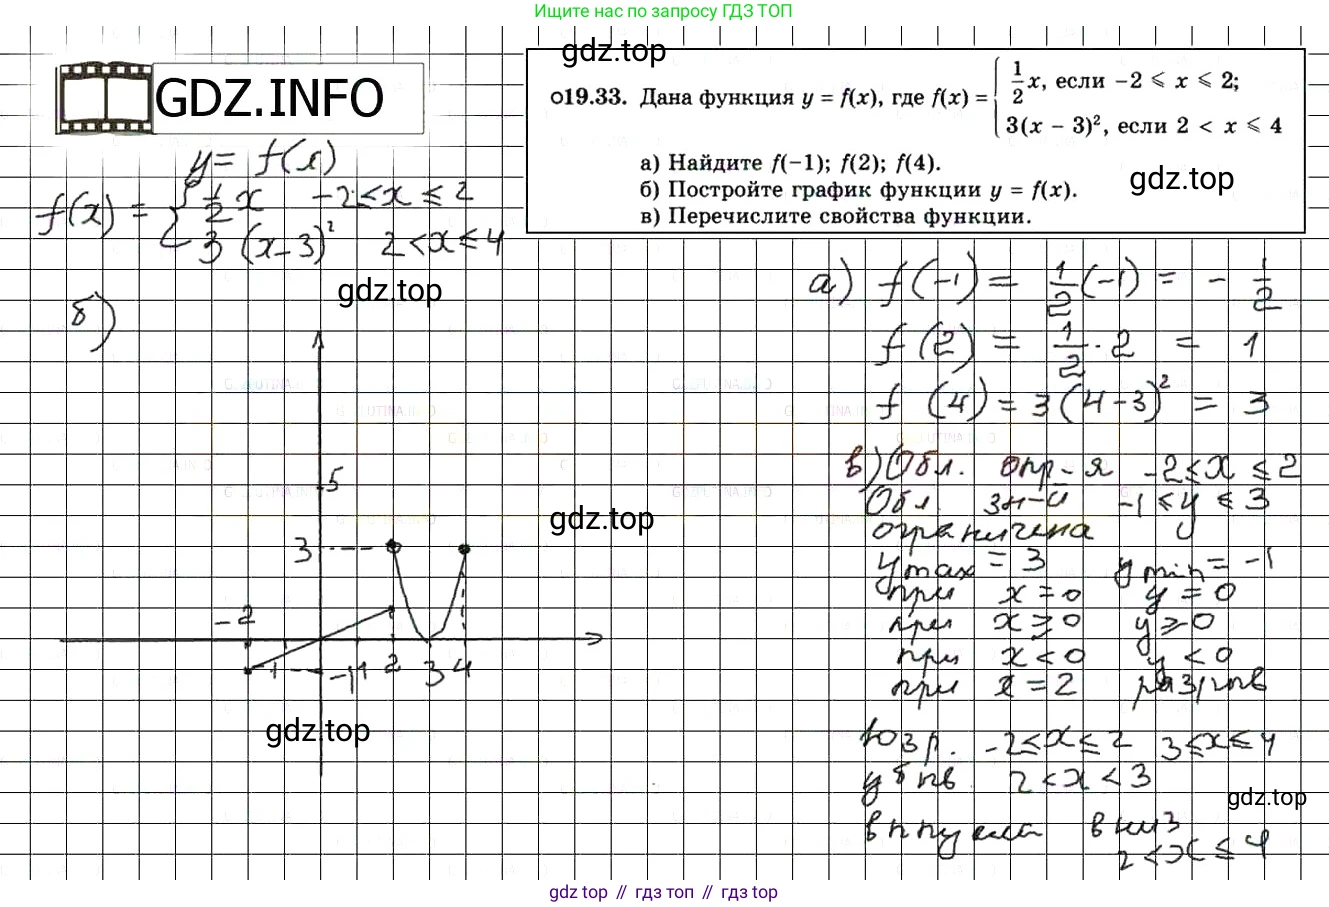 Ищите нас по запросу ГДЗ ТОП
gdz.top
GDZ.INFO
о19.33. Дана функция y = f(x), где f(x) = { 1/2 x, если −2 ⩽ x ⩽ 2;
3(x − 3)², если 2 < x ⩽ 4
а) Найдите f(−1); f(2); f(4).
б) Постройте график функции y = f(x).
в) Перечислите свойства функции.
gdz.top
y = f(x)
f(x) = { 1/2 x   −2 ≤ x ≤ 2
3 (x − 3)²   2 < x ≤ 4
gdz.top
а) f(−1) = 1/2 (−1) = − 1/2
f(2) = 1/2 · 2 = 1
f(4) = 3(4−3)² = 3
б)
5
3
−2
−1
1
2
3
4
−1
gdz.top
gdz.top
в) Обл. опр-я −2 ≤ x ≤ 2
Обл. зн-й −1 ≤ y ≤ 3
ограничена
y max = 3   y min = −1
при x = 0   y = 0
при x ≥ 0   y ≥ 0
при x < 0   y < 0
при x = 2   разрыв
возр. −2 ≤ x ≤ 2   3 ≤ x ≤ 4
убыв. 2 < x < 3
gdz.top
выпукла вниз
2 < x ≤ 4
gdz top // гдз топ // gdz top